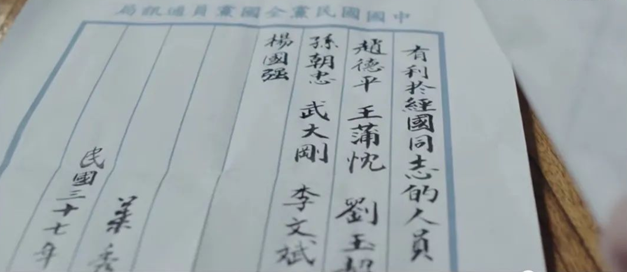 中國國民黨全國黨員通訊局
有利於經國同志的人員
趙德平 王蒲忱 劉玉
孫朝忠 武大剛 李文斌
楊國强
葉秀
民國三十七年